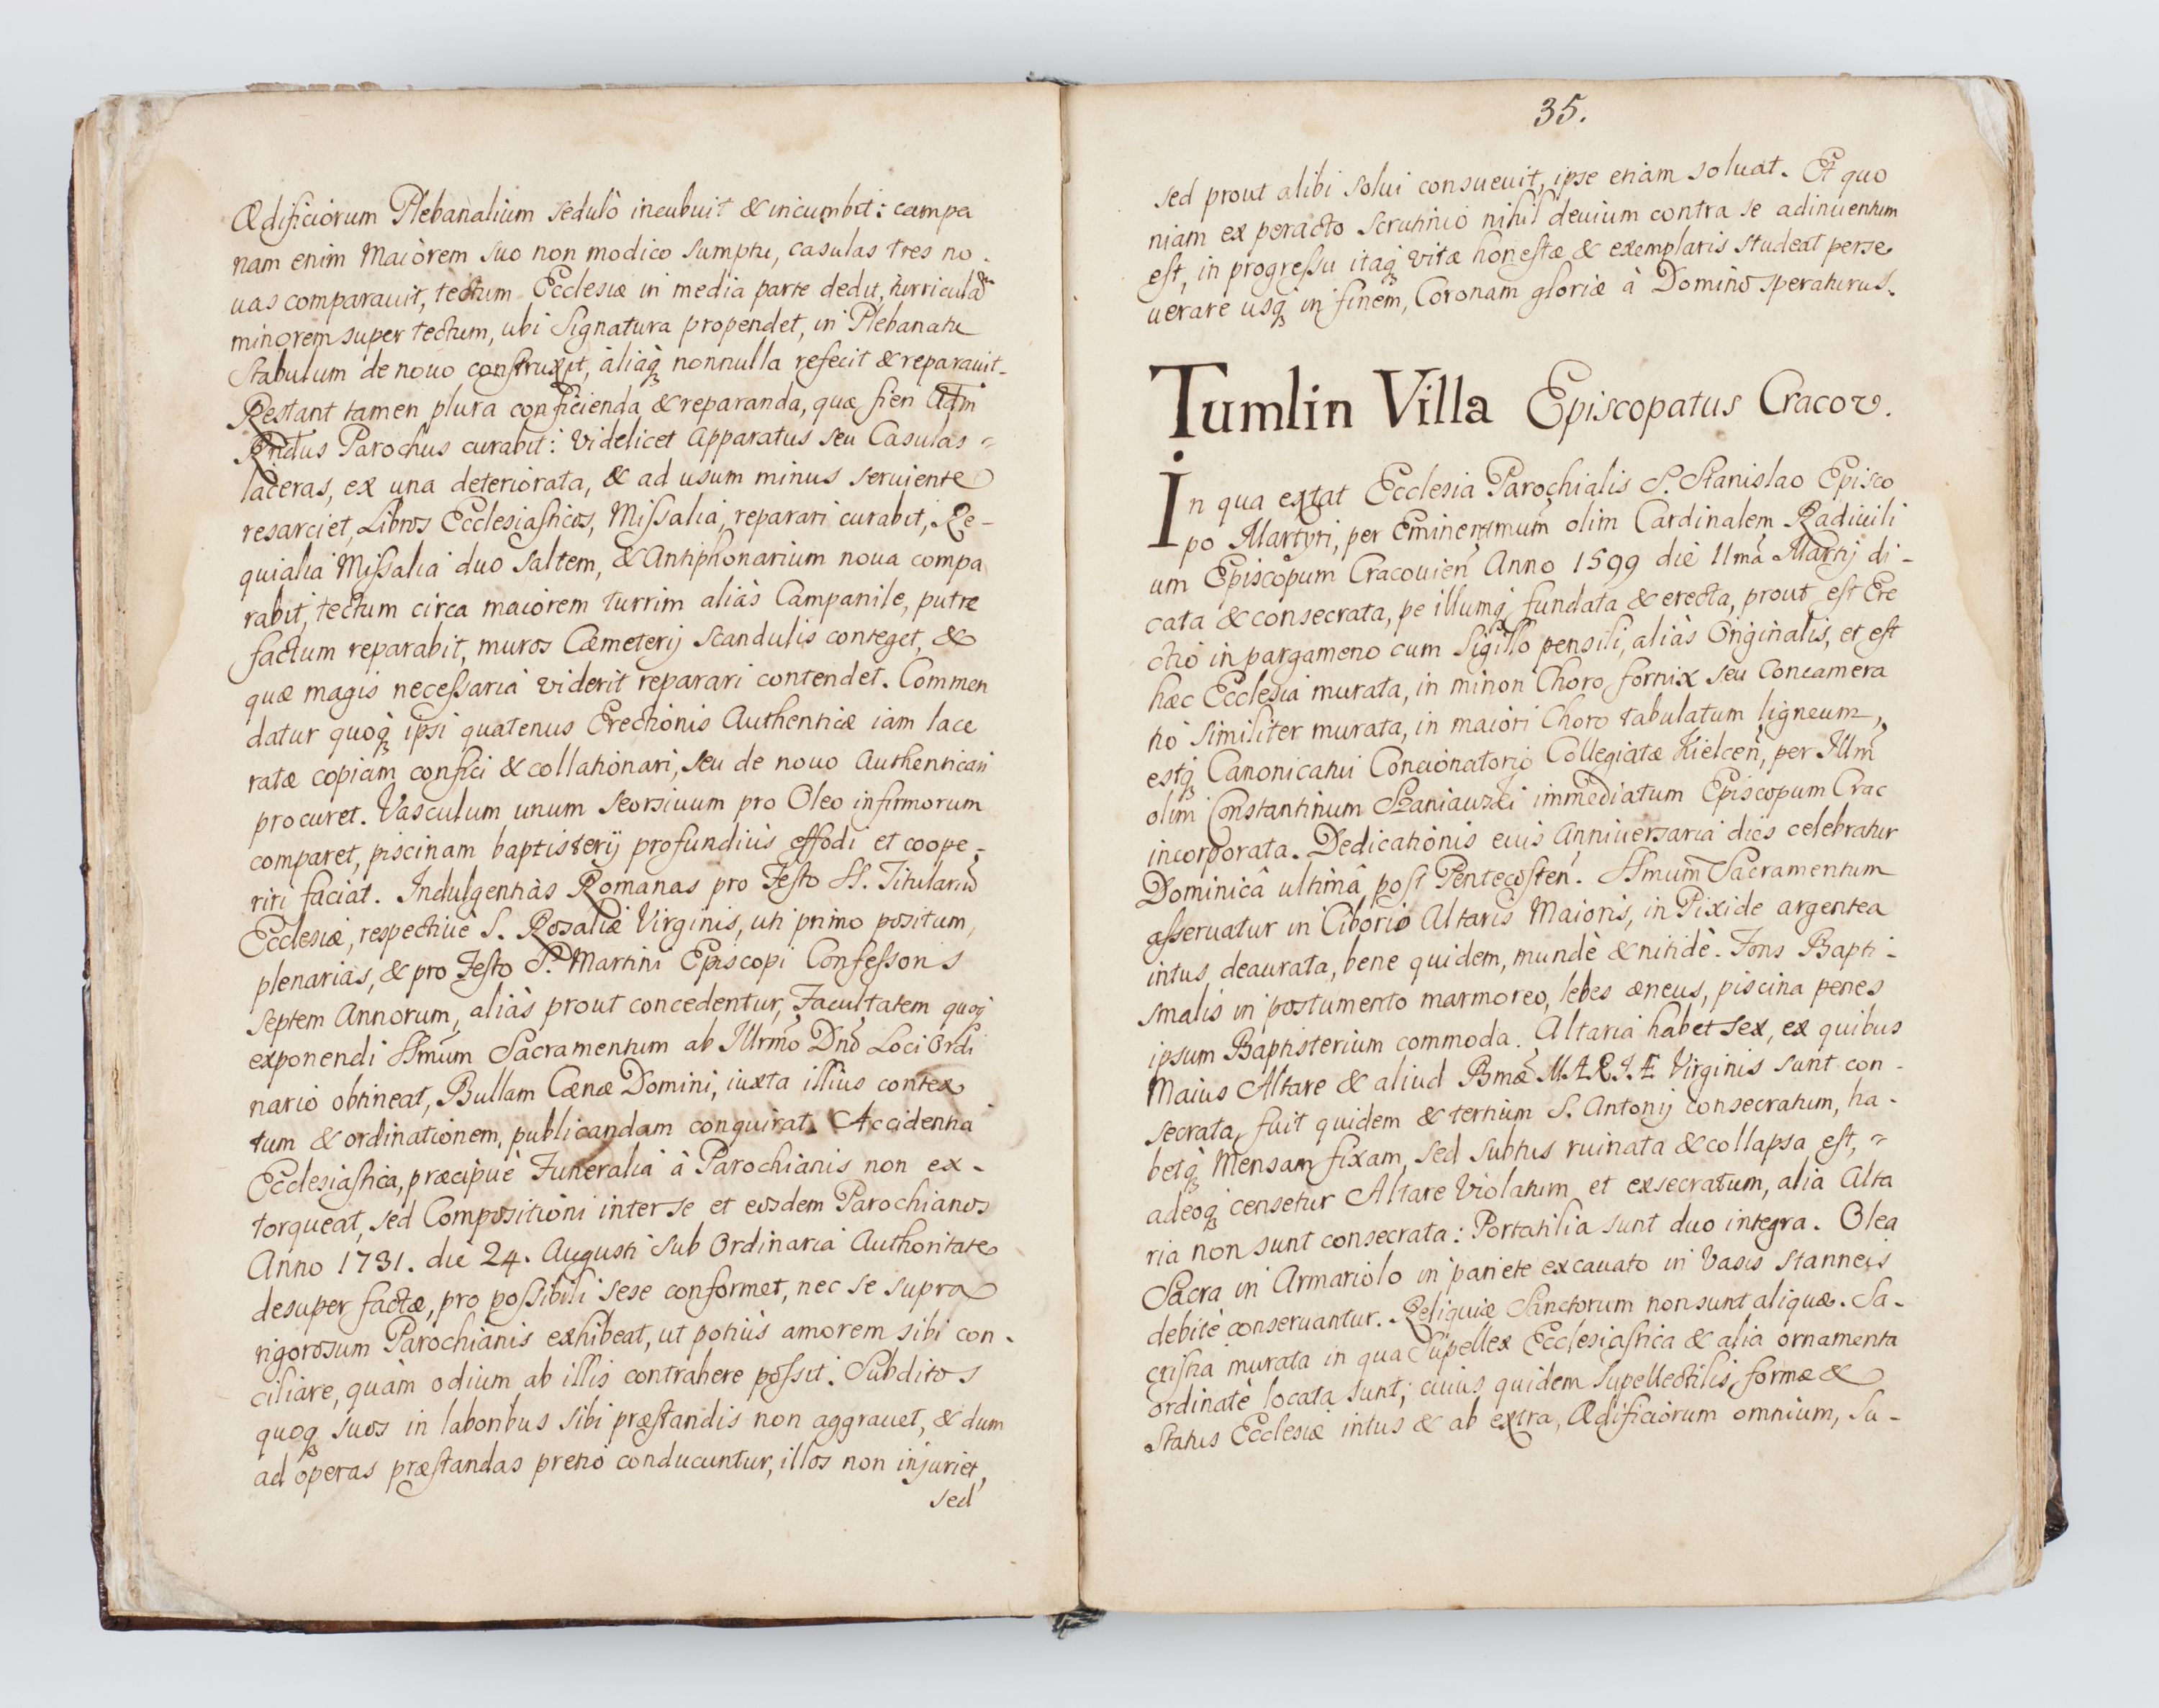 Ædificiorum Plebanalium sedulò incubuit & incumbit: campa
nam enim Maiorem suo non modico sumptu, casulas tres no-
uas comparauit, tectum Ecclesiæ in media parte dedit, turriculã
minorem super tectum, ubi Signatura propendet, in Plebanatu
Stabulum de nouo construxit, aliaq́ȝ nonnulla refecit & reparauit.
Restant tamen plura conficienda & reparanda, quæ fieri Adm̃
Rñdus Parochus curabit: Videlicet Apparatus seu Casulas =
laceras, ex una deteriorata, & ad usum minus seruiente
resarciet, Libros Ecclesiasticos, Missalia, reparari curabit, Re-
quialia Missalia duo saltem, & Antiphonarium noua compa
rabit, tectum circa maiorem turrim aliàs Campanile, putre
factum reparabit, muros Cæmeterij Scandulis conteget, &
quæ magis necessaria viderit reparari contendet. Commen
datur quoqȝ ipsi quatenus Erectionis Authenticæ iam lace
ratæ copiam confici & collationari, seu de nouo Authenticari
procuret. Vasculum unum seorsiuum pro Oleo infirmorum
comparet, piscinam baptisterij profundiùs effodi et coope-
riri faciat. Indulgentiàs Romanas pro Festo SS. Titulariũ
Ecclesiæ, respectiuè S. Rosaliæ Virginis, uti primo positum,
plenarias, & pro Festo S. Martini Episcopi Confessoris
septem Annorum, aliàs prout concedentur, Facultatem quoqȝ
exponendi SSm̃um Sacramentum ab Illrm̃o Dnõ Loci Ordi
nario obtineat, Bullam Cænæ Domini, iuxta illius contex
tum & ordinationem, publicandam conquirat. Accidentia
Ecclesiastica, præcipuè Funeralia à Parochianis non ex-
torqueat, sed Compositioni inter se et eosdem Parochianos
Anno 1731. die 24. Augusti sub Ordinaria Authoritate
desuper factæ, pro possibili sese conformet, nec se supra
rigorosum Parochianis exhibeat, ut potiùs amorem sibi con-
ciliare, quàm odium ab illis contrahere possit. Subditos
quoqȝ suos in laboribus sibi præstandis non aggrauet, & dum
ad operas præstandas pretio conducuntur, illos non injuriet,
sed
35.
sed prout alibi solui consueuit, ipse etiam soluat. Et quo
niam ex peracto scrutinio nihil deuium contra se adinuentum
est, in progressu itaqȝ vitæ honestæ & exemplaris studeat perse
uerare usqȝ in finem, Coronam gloriæ à Domino speraturus.
Tumlin Villa Episcopatus Cracov.
In qua extat Ecclesia Parochialis S. Stanislao Episco
po Martyri, per Eminentm̃um olim Cardinalem Radiuili
um Episcopum Cracouieñ Anno 1599 die 11ma Martij di-
cata & consecrata, pe illumqȝ fundata & erecta, prout est Ere
ctio in pargameno cum Sigillo pensili, aliàs Originalis, et est
hæc Ecclesia murata, in minori Choro fornix seu Concamera
tio similiter murata, in maiori Choro tabulatum ligneum,
estqȝ Canonicatui Concionatorio Collegiatæ Kielceñ, per Illm̃
olim Constantinum Szaniauski immediatum Episcopum Crac
incorporata. Dedicationis euis Anniuersaria dies celebratur
Dominicâ ultimâ post Pentecosteñ. SSmum̃ Sacramentum
asseruatur in Ciborio Altaris Maioris, in Pixide argentea
intus deaurata, bene quidem, mundè & nitidè. Fons Bapti-
smalis in postumento marmoreo, lebes æneus, piscina penes
ipsum Baptisterium commoda. Altaria habet sex, ex quibus
Maius Altare & aliud Bmæ̃ MARIÆ Virginis sunt con-
secrata, fuit quidem & tertium S. Antonij consecratum, ha-
betqȝ Mensam fixam, sed subtus ruinata & collapsa est, =
adeoqȝ censetur Altare Violatum et exsecratum, alia Alta
ria non sunt consecrata: Portatilia sunt duo integra. Olea
Sacra in Armariolo in pariete excauato in Vasis stanneis
debitè conseruantur. Reliquiæ Sanctorum non sunt aliquæ. Sa-
cristia murata in qua Supellex Ecclesiastica & alia ornamenta
ordinatè locata sunt; cuius quidem supellectilis, formæ &
Status Ecclesiæ intus & ab extra, Ædificiorum omnium, Su-